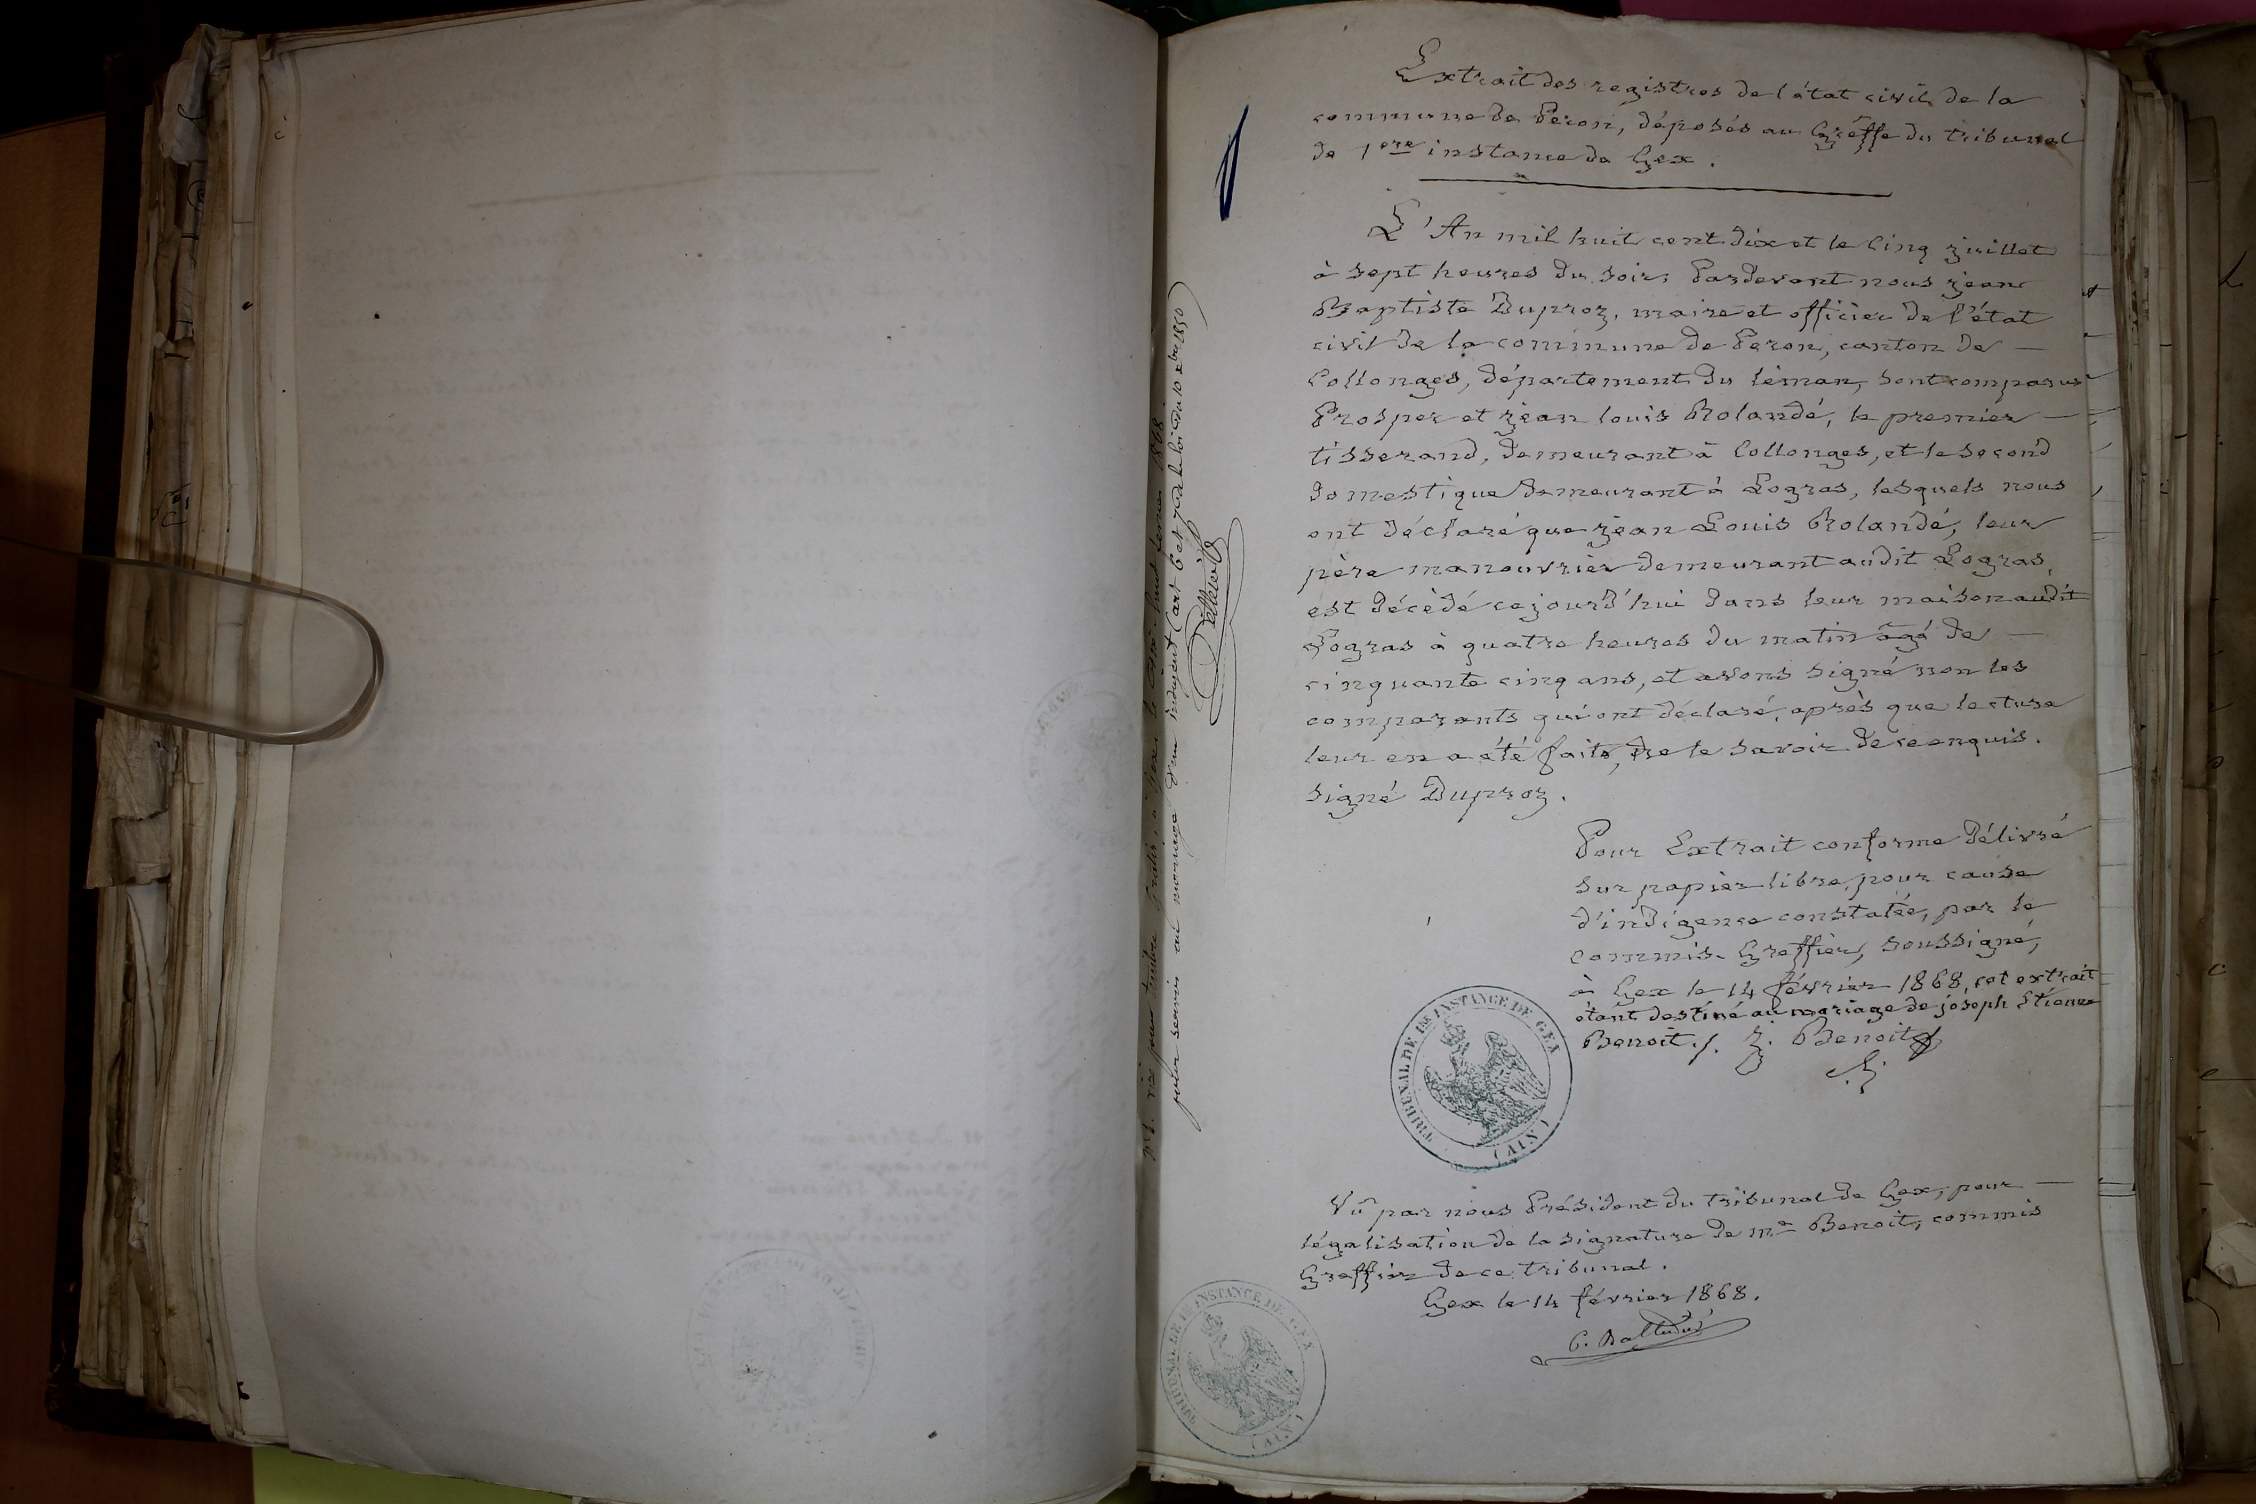 Extrait des registres de l'état civil de la
commune de Peron, déposés au Grèffe du tribunal
de 1ere instance de Gex.
L'An mil huit cent dix et le Cinq juillet
à sept heures du soir, Pardevant nous jean
Baptiste Duproz, maire et officier de l'état
civil de la commune de Peron, canton de —
Collonges, département du léman, sont comparus
Prosper et jean louis Rolandé, le premier —
tisserand, demeurant à Collonges, et le second
domestique demeurant à Logras, lesquels nous
ont déclaré que jean Louis Rolandé, leur
père manouvrièr demeurant audit Logras,
est décèdé cejourd'hui dans leur maison audit
Logras à quatre heures du matin âgé de —
cinquante cinq ans, et avons signé non les
comparants qui ont déclaré, après que lecture
leur en a été faite, ne le savoir de ce enquis.
signé Duproz.
Pour Extrait conforme délivré
sur papier libre, pour cause
d'indigence constatée, par le
commis-Greffièr, soussigné,
à Gex le 14 février 1868, cet extrait
étant destiné au mariage de joseph Etienne
Benoit ./. J. Benoit
Vû par nous Président du tribunal de Gex, pour —
légalisation de la signature de me Benoit, commis
Greffier de ce tribunal.
Gex le 14 février 1868.
TRIBUNAL DE 1RE INSTANCE DE GEX
(AIN)
TRIBUNAL DE 1RE INSTANCE DE GEX
(AIN)
visé pour timbre gratis, à Gex le dix-huit février 1868
pour servir au mariage d'un indigent (art 6 et 7 de la loi du 10 Xbre 1850)